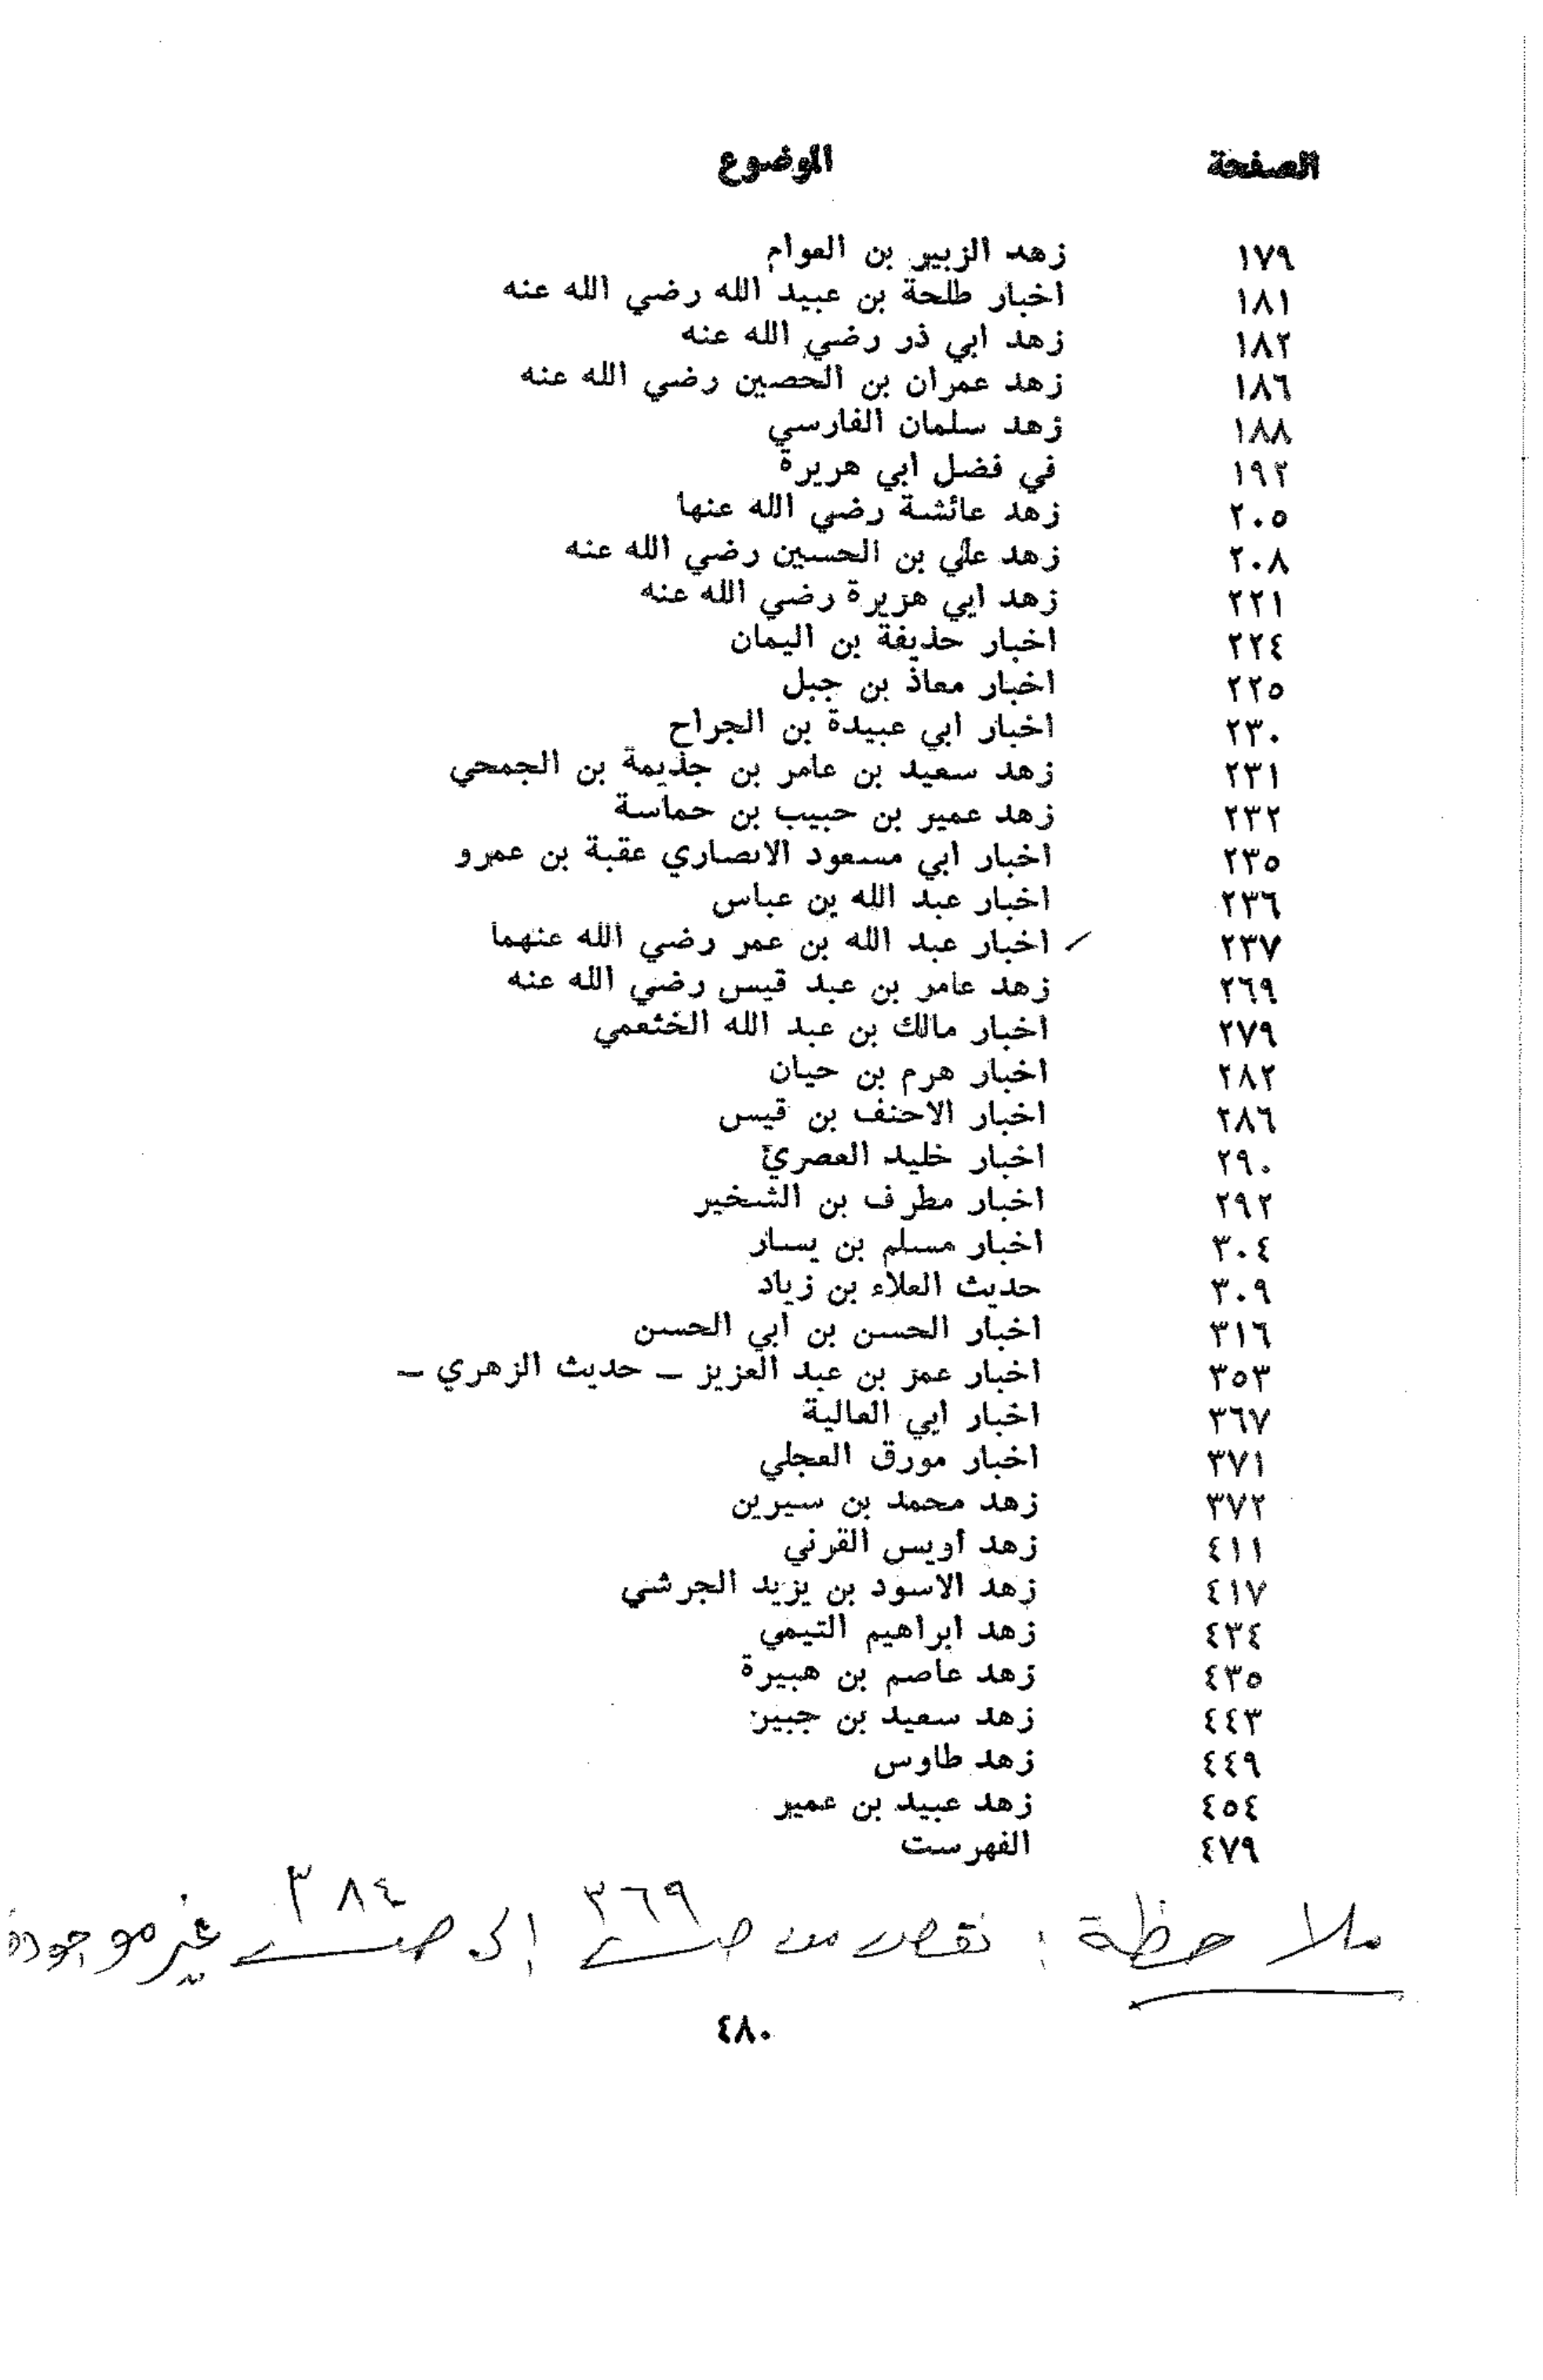 الصفحة الموضوع
١٧٩ زهد الزبير بن العوام
١٨١ اخبار طلحة بن عبيد الله رضي الله عنه
١٨٢ زهد ابي ذر رضي الله عنه
١٨٦ زهد عمران بن الحصين رضي الله عنه
١٨٨ زهد سلمان الفارسي
١٩٢ في فضل ابي هريرة
٢٠٥ زهد عائشة رضي الله عنها
٢٠٨ زهد علي بن الحسين رضي الله عنه
٢٢١ زهد ابي هريرة رضي الله عنه
٢٢٤ اخبار حذيفة بن اليمان
٢٢٥ اخبار معاذ بن جبل
٢٣٠ اخبار ابي عبيدة بن الجراح
٢٣١ زهد سعيد بن عامر بن جذيمة بن الجمحي
٢٣٢ زهد عمير بن حبيب بن حماسة
٢٣٥ اخبار ابي مسعود الانصاري عقبة بن عمرو
٢٣٦ اخبار عبد الله بن عباس
٢٣٧ اخبار عبد الله بن عمر رضي الله عنهما
٢٦٩ زهد عامر بن عبد قيس رضي الله عنه
٢٧٩ اخبار مالك بن عبد الله الخثعمي
٢٨٢ اخبار هرم بن حيان
٢٨٦ اخبار الاحنف بن قيس
٢٩٠ اخبار خليد العصري
٢٩٢ اخبار مطرف بن الشخير
٣٠٤ اخبار مسلم بن يسار
٣٠٩ حديث العلاء بن زياد
٣١٦ اخبار الحسن بن ابي الحسن
٣٥٣ اخبار عمر بن عبد العزيز – حديث الزهري –
٣٦٧ اخبار ابي العالية
٣٧١ اخبار مورق العجلي
٣٧٢ زهد محمد بن سيرين
٤١١ زهد أويس القرني
٤١٧ زهد الاسود بن يزيد الجرشي
٤٣٤ زهد ابراهيم التيمي
٤٣٥ زهد عاصم بن هبيرة
٤٤٣ زهد سعيد بن جبير
٤٤٩ زهد طاوس
٤٥٤ زهد عبيد بن عمير
٤٧٩ الفهرست
ملاحظة : نقص من صـ ٣٦٩ إلى صـ ٣٨٤ غير موجودة
٤٨٠